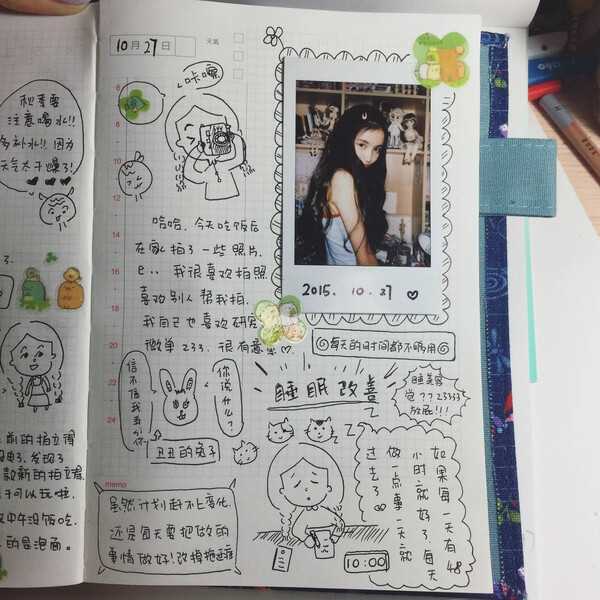 秋季要
注意喝水!!
多补水!! 因为
天气太干燥了!
10月27日
天气
咔嚓
6
8
10
12
14
16
18
20
22
24
哈哈,今天吃饭后
在家拍了一些照片,
我很喜欢拍照
喜欢别人帮我拍.
我自己也喜欢研究
微单 233. 很有意思
2015. 10. 27
每天的时间都不够用
信不信我
你说什么?
丑丑的兔子
睡眠改善
睡美容
觉??23333
放屁!!!
Z
Z Z
如果每一天有48
小时就好了.每天
做一点事一天就
过去了
10:00
memo
虽然计划赶不上变化.
还是每天要把做的
事情做好!改掉拖延症
的拍立得
发现了
款新的拍立得
可以玩啦.
中午没饭吃.
的是泡面。